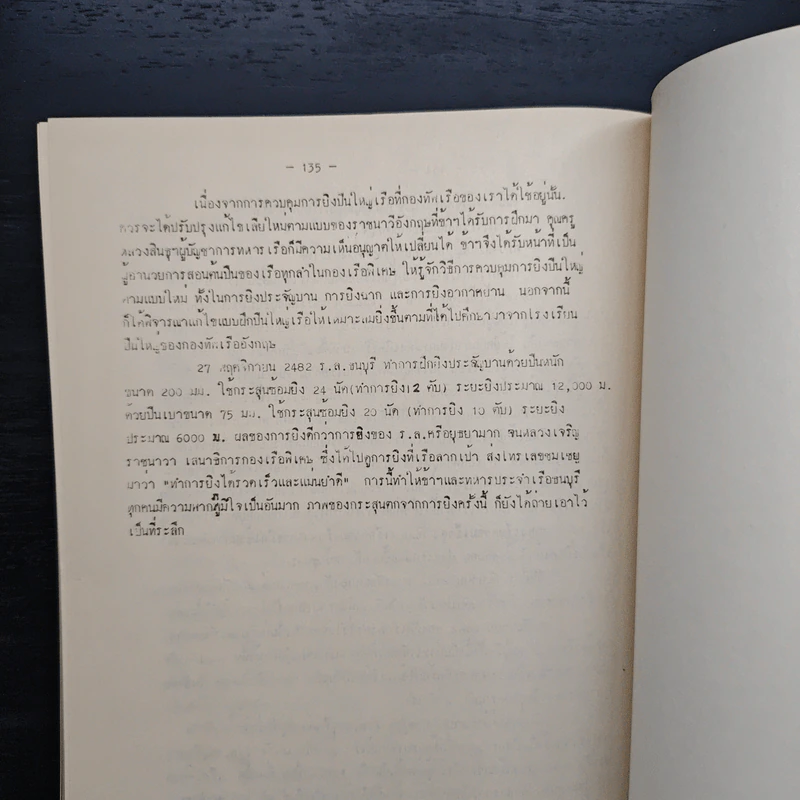 - 135 -
เนื่องจากการควบคุมการยิงปืนใหญ่เรือที่กองทัพเรือของเราได้ใช้อยู่นั้น.
ควรจะได้ปรับปรุงแก้ไขเสียใหม่ตามแบบของราชนาวีอังกฤษที่ข้าฯได้รับการฝึกมา คุณครู
หลวงสินธุฯผู้บัญชาการทหารเรือก็มีความเห็นอนุญาตให้เปลี่ยนได้ ข้าฯจึงได้รับหน้าที่เป็น
ผู้อำนวยการสอนต้นปืนของเรือทุกลำในกองเรือพิเศษ ให้รู้จักวิธีการควบคุมการยิงปืนใหญ่
ตามแบบใหม่ ทั้งในการยิงประจัญบาน การยิงฉาก และการยิงอากาศยาน นอกจากนี้
ก็ได้พิจารณาแก้ไขแบบฝึกปืนใหญ่เรือให้เหมาะสมยิ่งขึ้นตามที่ได้ไปศึกษามาจากโรงเรียน
ปืนใหญ่ของกองทัพเรืออังกฤษ
27 พฤศจิกายน 2482 ร.ล.ธนบุรี ทำการฝึกยิงประจัญบานด้วยปืนหนัก
ขนาด 200 มม. ใช้กระสุนซ้อมยิง 24 นัด(ทำการยิง12 ตับ) ระยะยิงประมาณ 12,000 ม.
ด้วยปืนเบาขนาด 75 มม. ใช้กระสุนซ้อมยิง 20 นัด (ทำการยิง 10 ตับ) ระยะยิง
ประมาณ 6000 ม. ผลของการยิงดีกว่าการยิงของ ร.ล.ศรีอยุธยามาก จนหลวงเจริญ
ราชนาวา เสนาธิการกองเรือพิเศษ ซึ่งได้ไปดูการยิงที่เรือลากเป้า ส่งโทรเลขชมเชย
มาว่า "ทำการยิงได้รวดเร็วและแม่นยำดี" การนี้ทำให้ข้าฯและทหารประจำเรือธนบุรี
ทุกคนมีความภาคภูมิใจเป็นอันมาก ภาพของกระสุนตกจากการยิงครั้งนี้ ก็ยังได้ถ่ายเอาไว้
เป็นที่ระลึก